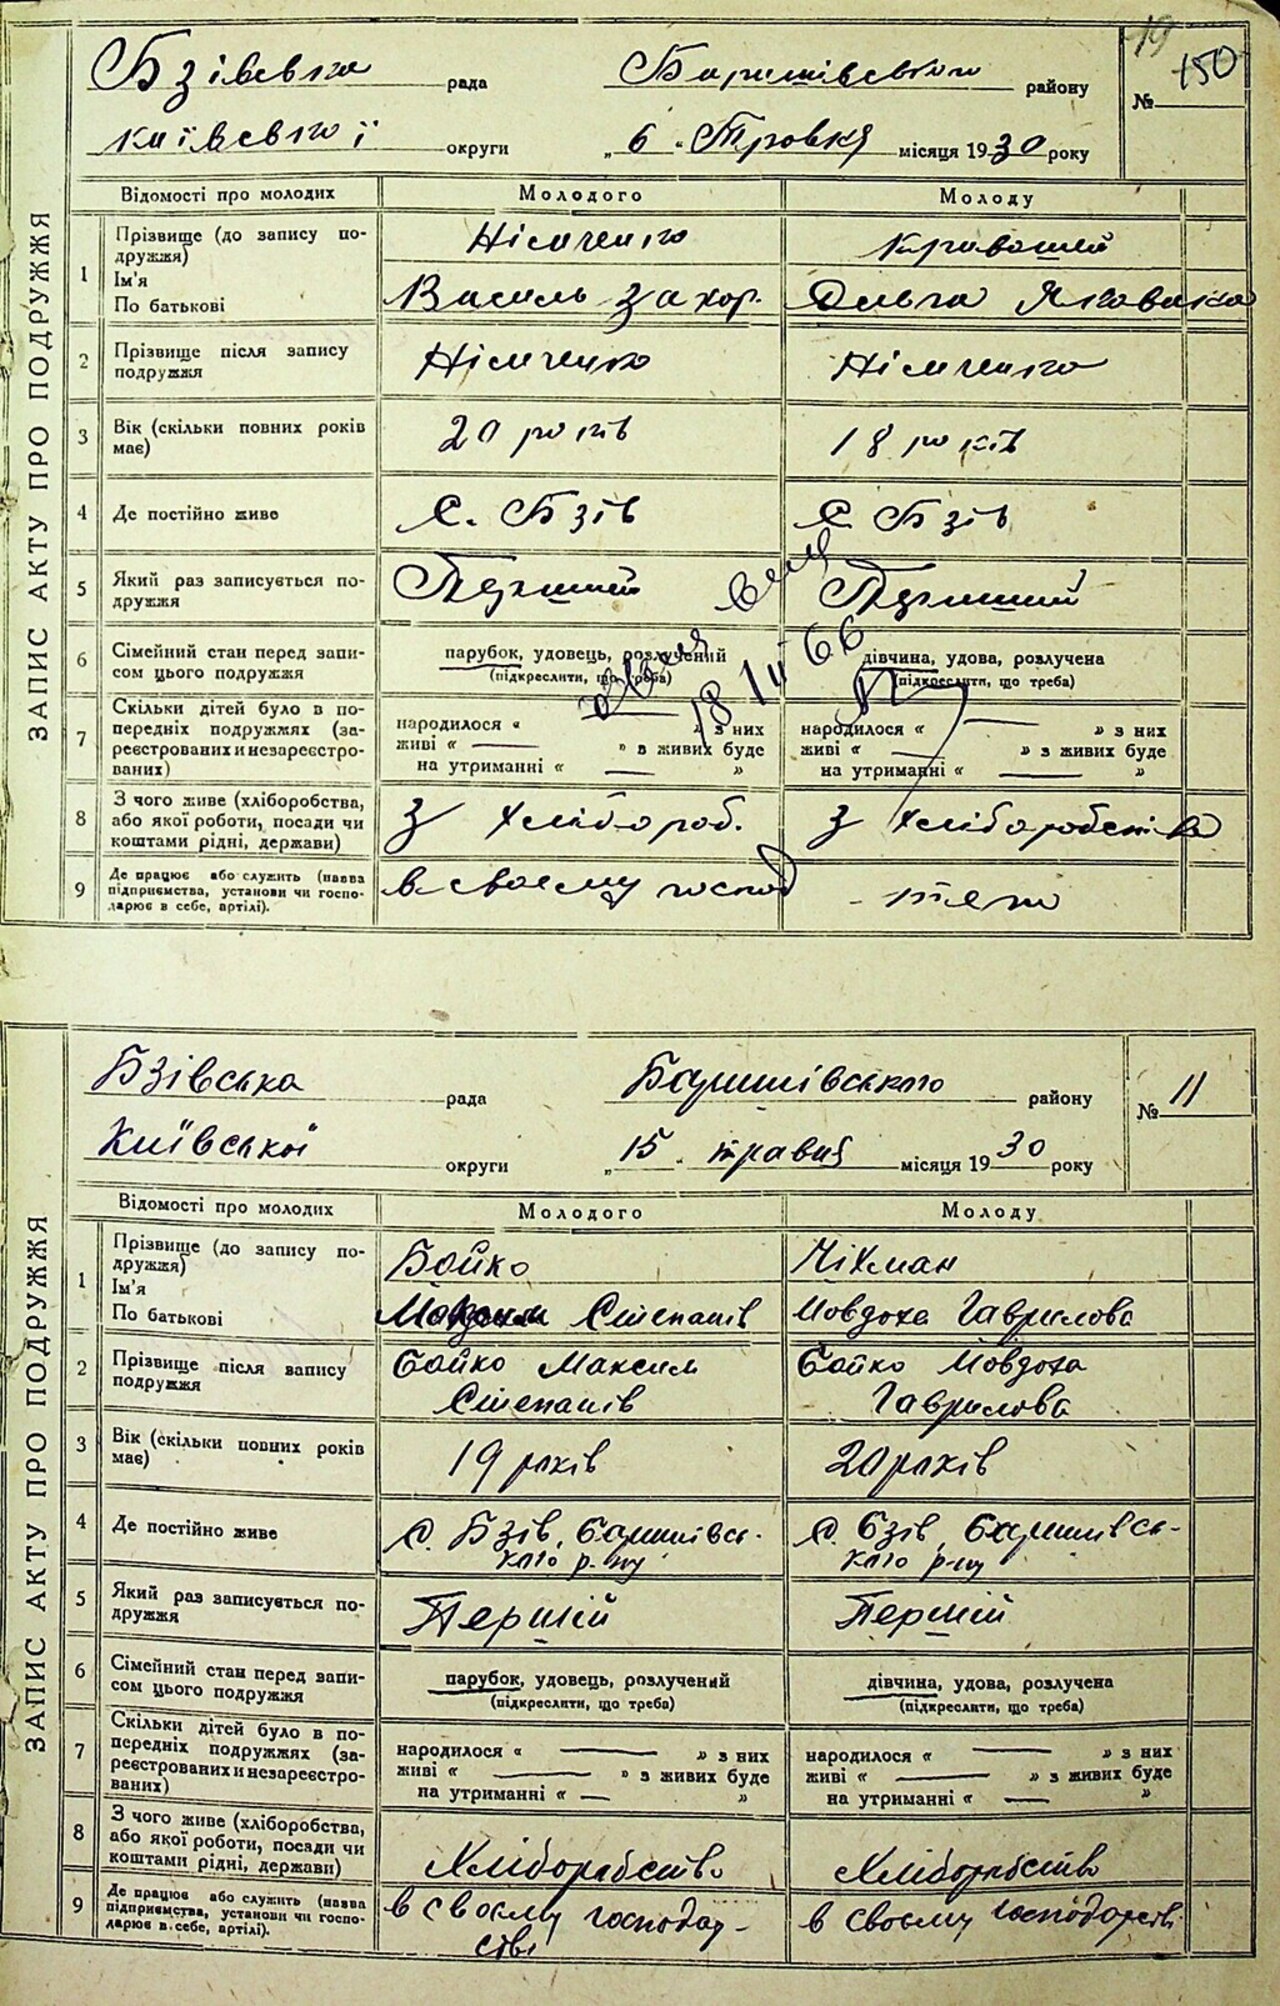 19
150
Бзівська рада Баришівського району №
київської округи „ 6 “ Травня місяця 1930 року
ЗАПИС АКТУ ПРО ПОДРУЖЖЯ
Відомості про молодих Молодого Молоду
1 Прізвище (до запису по-
дружжя)
Ім'я
По батькові
Німченко
Василь Захор.
Ольга Яковивна
2 Прізвище після запису
подружжя
Німченко Німченко
3 Вік (скільки повних років
має)
20 років 18 років
4 Де постійно живе с. Бзів с. Бзів
5 Який раз записується по-
дружжя
Перший Перший
6 Сімейний стан перед запи-
сом цього подружжя
парубок, удовець, розлучений
(підкреслити, що треба)
дівчина, удова, розлучена
(підкреслити, що треба)
7 Скільки дітей було в по-
передніх подружжях (за-
реєстрованих и незареєстро-
ваних)
народилося « — » з них
живі « — » з живих буде
на утриманні « — »
народилося « — » з них
живі « — » з живих буде
на утриманні « — »
8 З чого живе (хліборобства,
або якої роботи, посади чи
коштами рідні, держави)
З хлібороб. З хліборобства
9 Де працює або служить (назва
підприємства, установи чи госпо-
дарює в себе, артілі).
в своєму господ
Бзівська рада Баришівського району № 11
Київської округи „ 15 “ травня місяця 1930 року
ЗАПИС АКТУ ПРО ПОДРУЖЖЯ
Відомості про молодих Молодого Молоду
1 Прізвище (до запису по-
дружжя)
Ім'я
По батькові
Бойко Чіхман
Максим Степанів Мовдоха Гаврилова
2 Прізвище після запису
подружжя
Бойко Максим
Степанів
Бойко Мовдоха
Гаврилова
3 Вік (скільки повних років
має)
19 років 20 років
4 Де постійно живе
с. Бзів, Баришівсь-
кого р-ну
с. Бзів, Баришівсь-
кого р-ну
5 Який раз записується по-
дружжя
Першій Першій
6 Сімейний стан перед запи-
сом цього подружжя
парубок, удовець, розлучений
(підкреслити, що треба)
дівчина, удова, розлучена
(підкреслити, що треба)
7 Скільки дітей було в по-
передніх подружжях (за-
реєстрованих и незареєстро-
ваних)
народилося « — » з них
живі « — » з живих буде
на утриманні « — »
народилося « — » з них
живі « — » з живих буде
на утриманні « — »
8 З чого живе (хліборобства,
або якої роботи, посади чи
коштами рідні, держави)
Хліборобство Хліборобство
9 Де працює або служить (назва
підприємства, установи чи госпо-
дарює в себе, артілі).
в своєму господар-
стві
в своєму господарстві